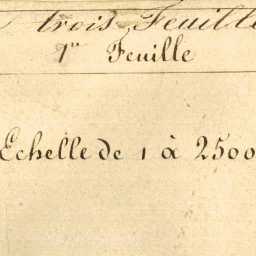 trois Feuille
1re Feuille
Echelle de 1 à 2500